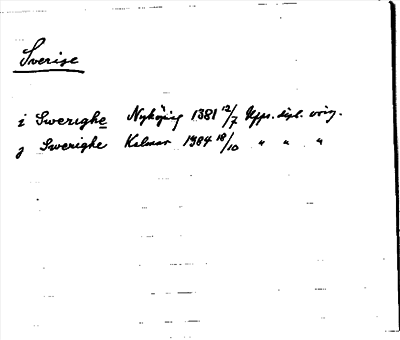 Sverige
i Swerighe Nyköping 1381 12/7 Upps. dipl. orig.
j Swerighe Kalmar 1384 18/10 " " "